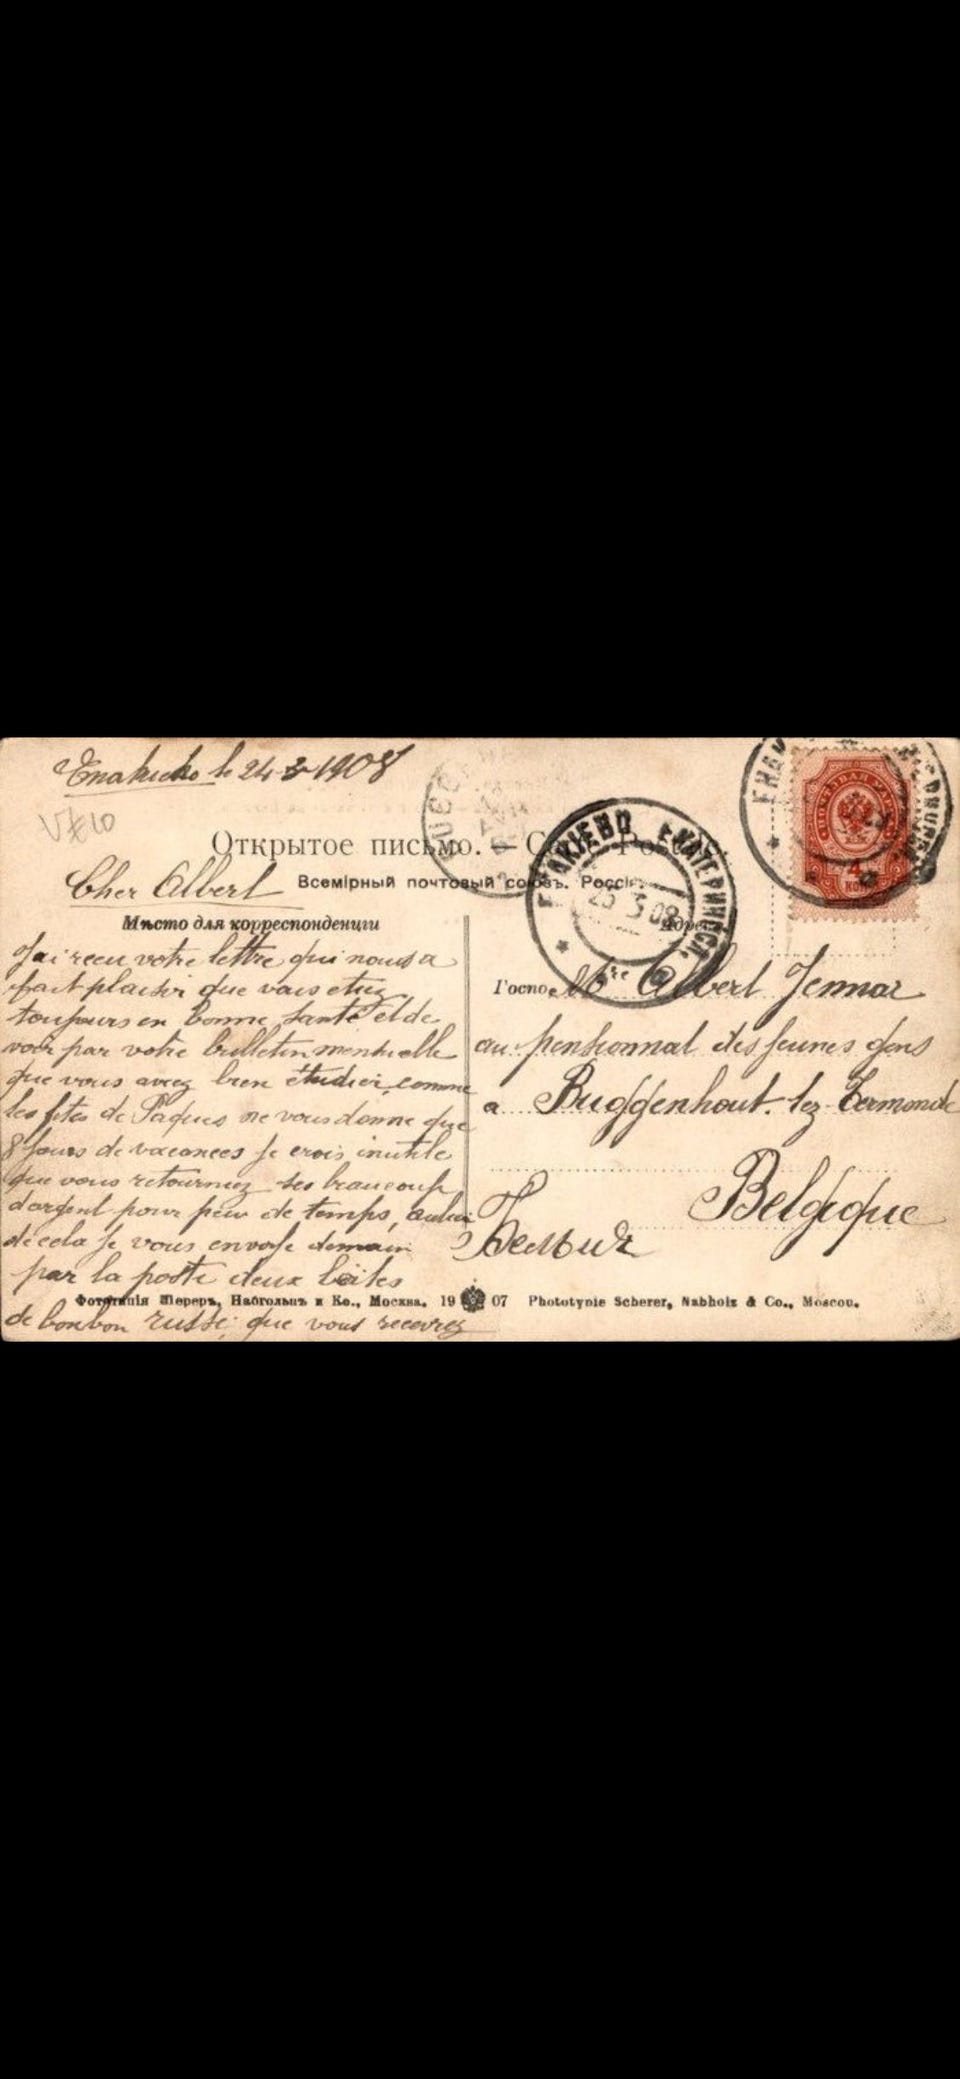 Enakiebo le 24-3-1908
V£10
Открытое письмо. — Carte Postale.
Всемірный почтовый союзъ. Россія.
Cher Albert
Мѣсто для корреспонденціи
J'ai recu votre lettre qui nous a
fait plaisir que vous etiez
toujours en bonne santé et de
voir par votre bulletin mentuelle
que vous avez bien étudier, comme
les fêtes de Paques ne vous donne que
8 jours de vacances je crois inutile
que vous retourniez
d'argent pour peu de temps, aulieu
de cela je vous envoje demain
par la poste deux boites
de bonbon russe que vous recevrez
ЕНАКІЕВО ЕКАТЕРИНОСЛ.
25 3 08
Адресъ
Госпо Mre Albert Jennar
au pensionnat des jeunes gens
a Buggenhout. lez Termonde
Belgique
Бельгия
4 КОП
Фототипія Шереръ, Набгольцъ и Ко., Москва. 19 07 Phototypie Scherer, Nabholz & Co., Moscou.